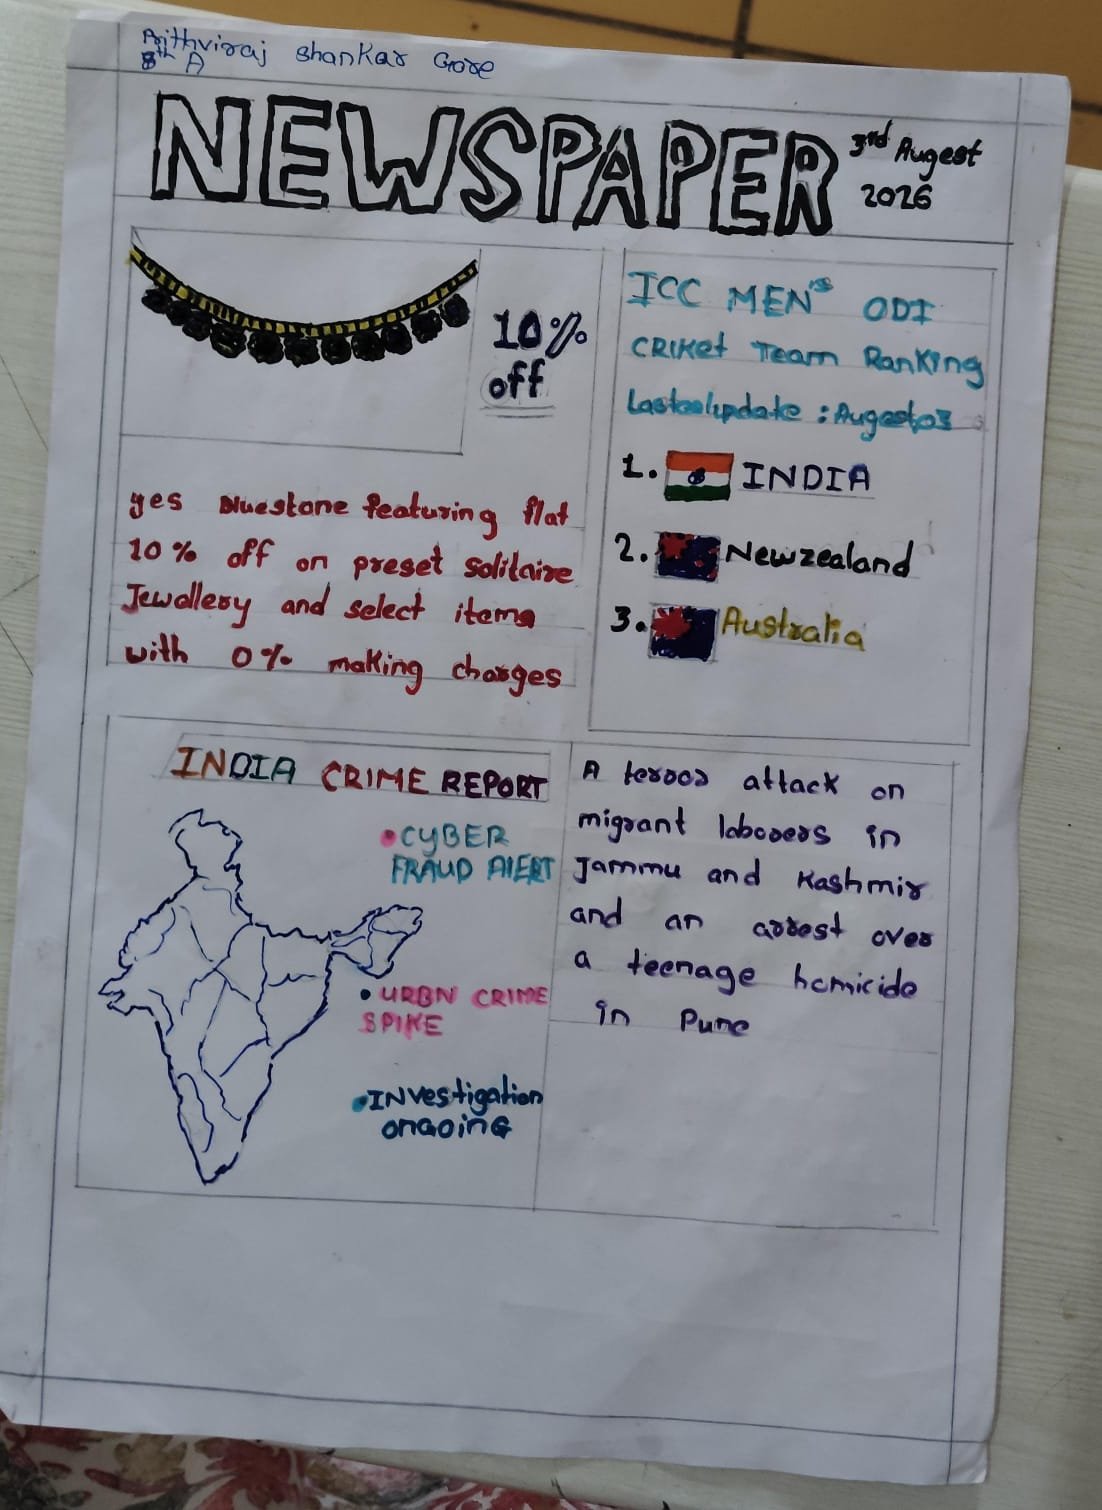 Prithviraj Shankar Gore
8th A
NEWSPAPER
3rd Augest
2026
10%
off
yes Bluestone featuring flat
10% off on preset solitaire
Jewellery and select items
with 0% making charges
ICC MEN's ODI
CRIKet Team Ranking
Last update : Augest 03
1. INDIA
2. Newzealand
3. Australia
INDIA CRIME REPORT
• CYBER
FRAUD AlERT
• URBN CRIME
SPIKE
• INVestigation
ONGOING
A teroor attack on
migrant laborers in
Jammu and Kashmir
and an arrest over
a teenage homicide
in Pune